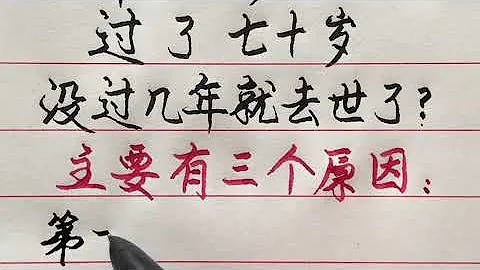 过了七十岁
没过几年就去世了?
主要有三个原因:
第一